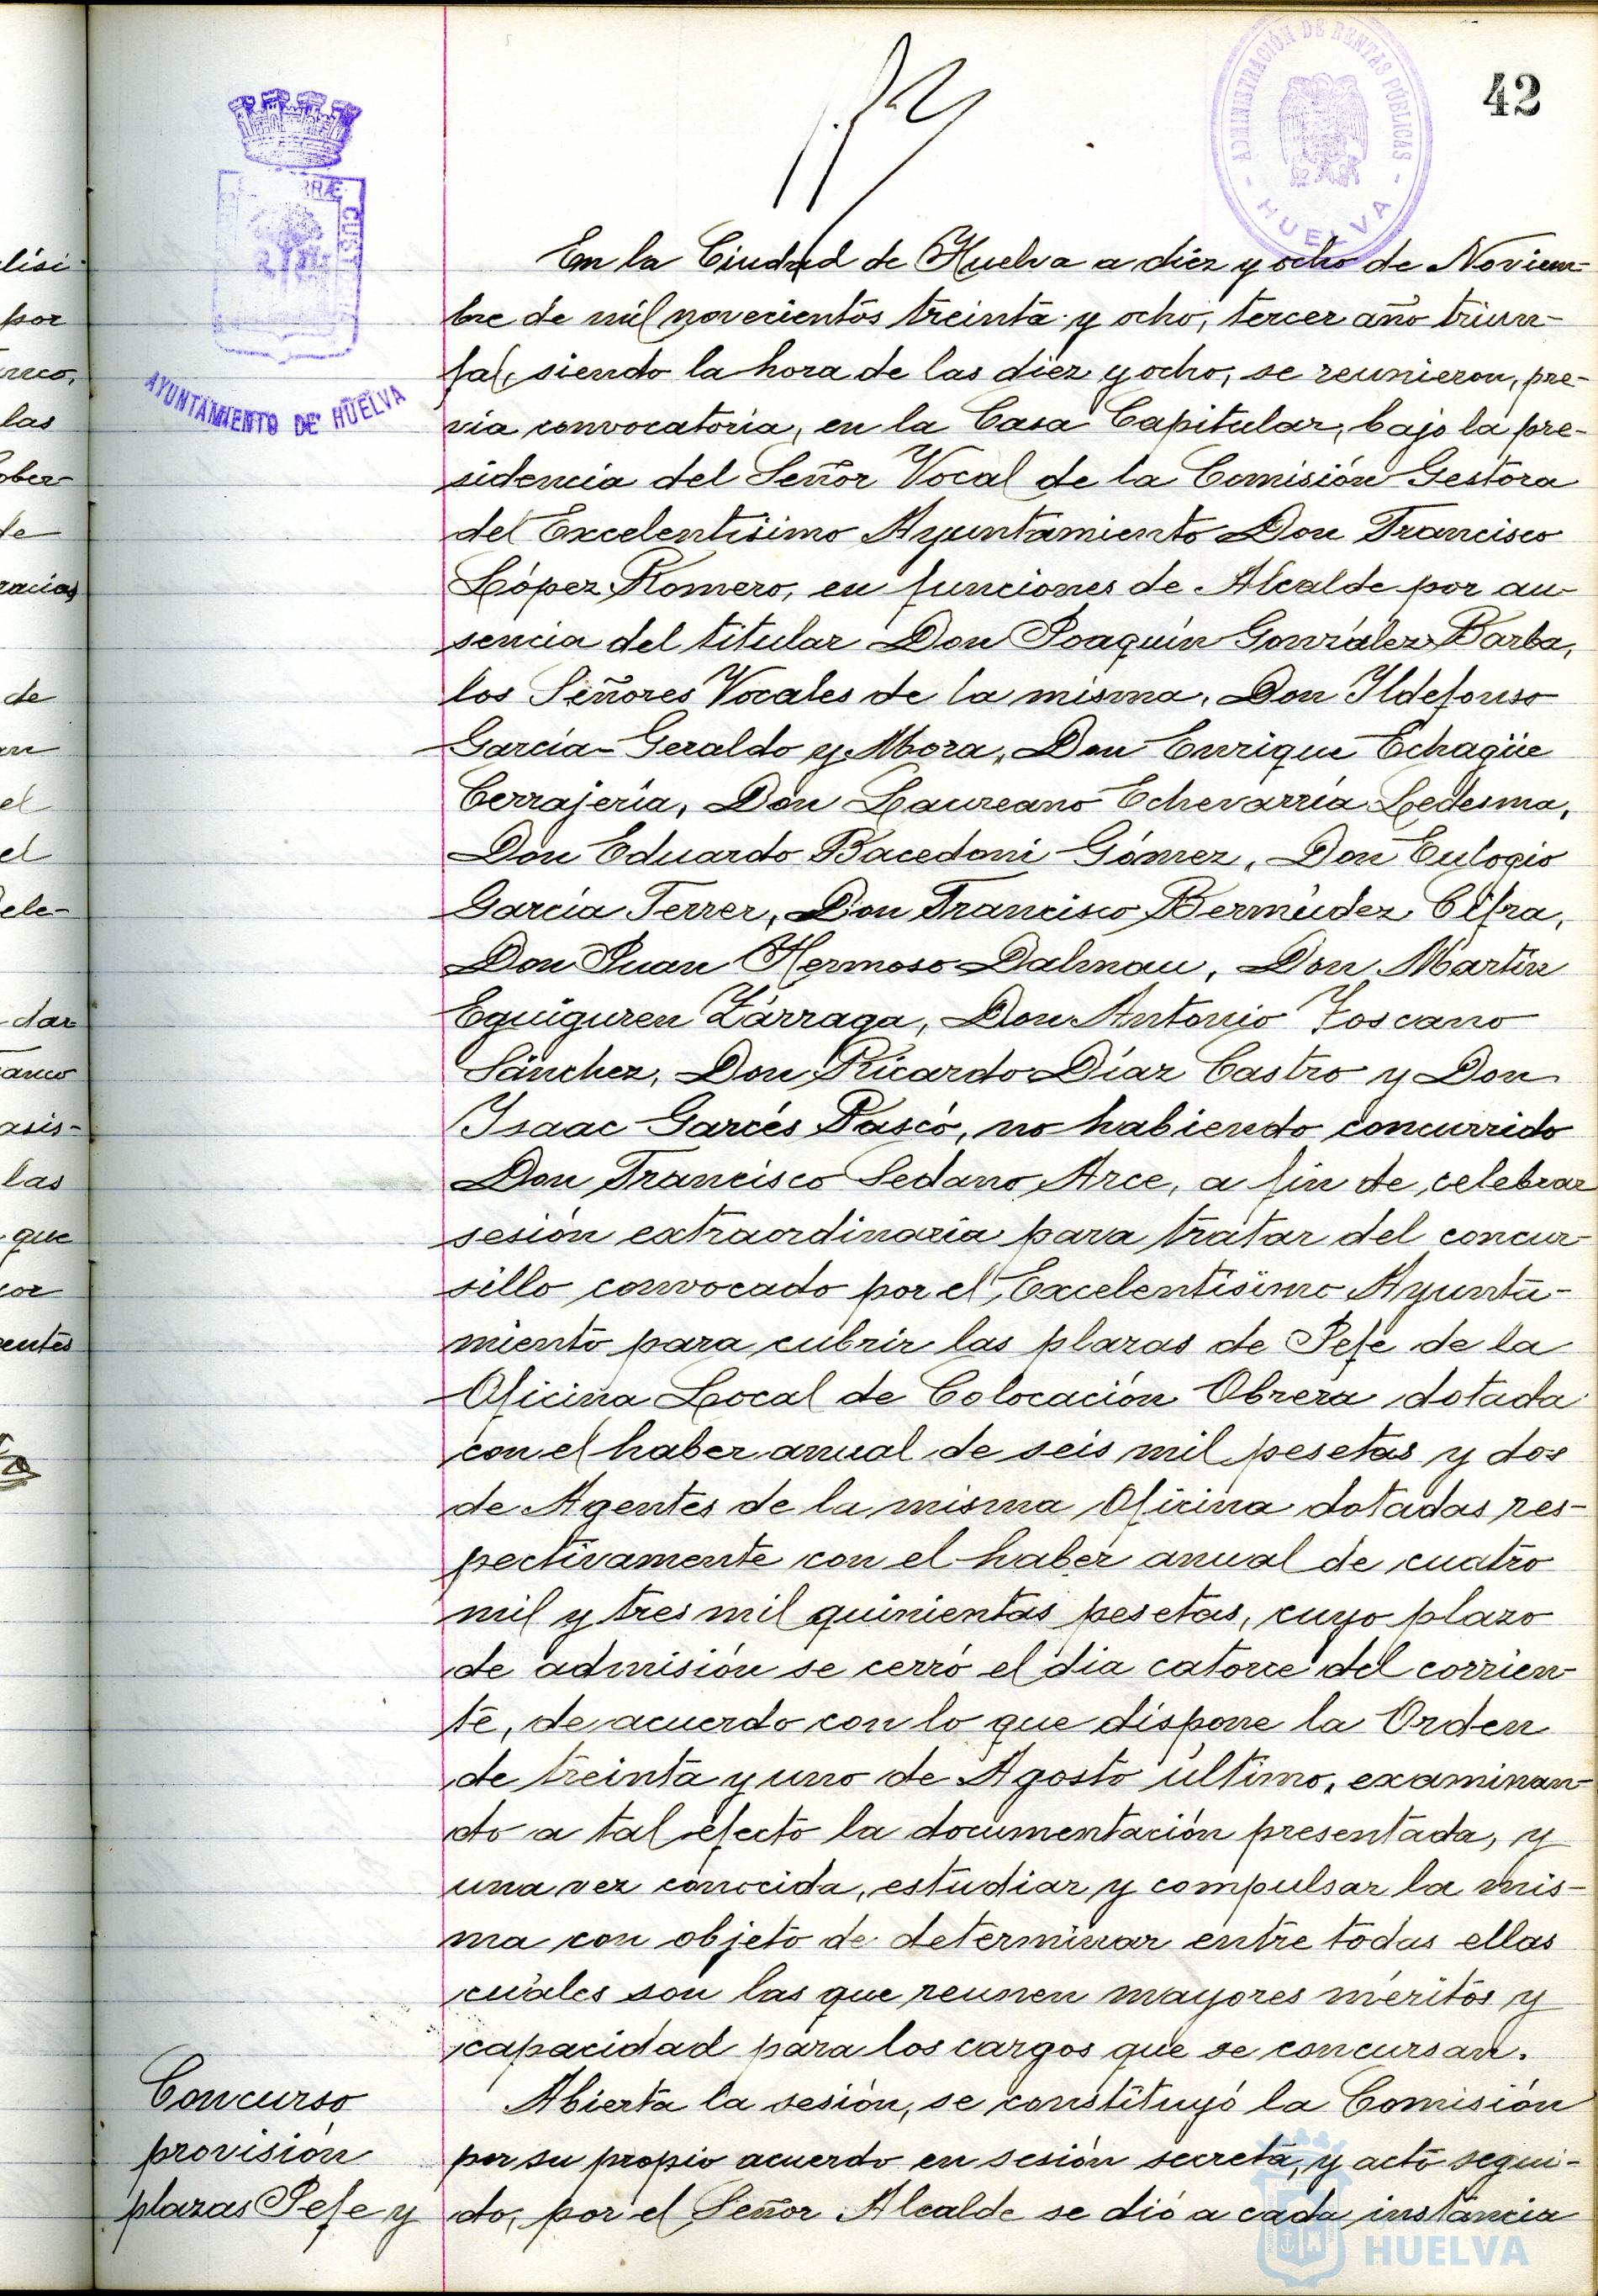 42
ADMINISTRACIÓN DE RENTAS PÚBLICAS
HUELVA
AYUNTAMIENTO DE HUELVA
En la Ciudad de Huelva a diez y ocho de Noviem-
bre de mil novecientos treinta y ocho, tercer año triun-
fal, siendo la hora de las diez y ocho, se reunieron, pre-
via convocatoria, en la Casa Capitular, bajo la pre-
sidencia del Señor Vocal de la Comisión Gestora
del Excelentísimo Ayuntamiento Don Francisco
López Romero, en funciones de Alcalde por au-
sencia del titular Don Joaquín González Barba,
los Señores Vocales de la misma, Don Ildefonso
García-Geraldo y Mora, Don Enrique Echagüe
Cerrajería, Don Laureano Echevarría Ledesma,
Don Eduardo Bacedoni Gómez, Don Eulogio
García Ferrer, Don Francisco Bermúdez Cifra,
Don Juan Hermoso Dalmau, Don Martín
Eguiguren Zárraga, Don Antonio Toscano
Sánchez, Don Ricardo Díaz Castro y Don
Isaac Garcés Pascó, no habiendo concurrido
Don Francisco Sedano Arce, a fin de celebrar
sesión extraordinaria para tratar del concur-
sillo convocado por el Excelentísimo Ayunta-
miento para cubrir las plazas de Jefe de la
Oficina Local de Colocación Obrera dotada
con el haber anual de seis mil pesetas y dos
de Agentes de la misma Oficina dotadas res-
pectivamente con el haber anual de cuatro
mil y tres mil quinientas pesetas, cuyo plazo
de admisión se cerró el día catorce del corrien-
te, de acuerdo con lo que dispone la Orden
de treinta y uno de Agosto último, examinan-
do a tal efecto la documentación presentada, y
una vez conocida, estudiar y compulsar la mis-
ma con objeto de determinar entre todas ellas
cuáles son las que reunen mayores méritos y
capacidad para los cargos que se concursan.
Concurso
provisión
plazas Jefe y
Abierta la sesión, se constituyó la Comisión
por su propio acuerdo en sesión secreta, y acto segui-
do, por el Señor Alcalde se dió a cada instancia
HUELVA